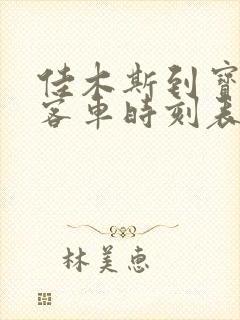 佳木斯到寶
客車時刻表
林美惠